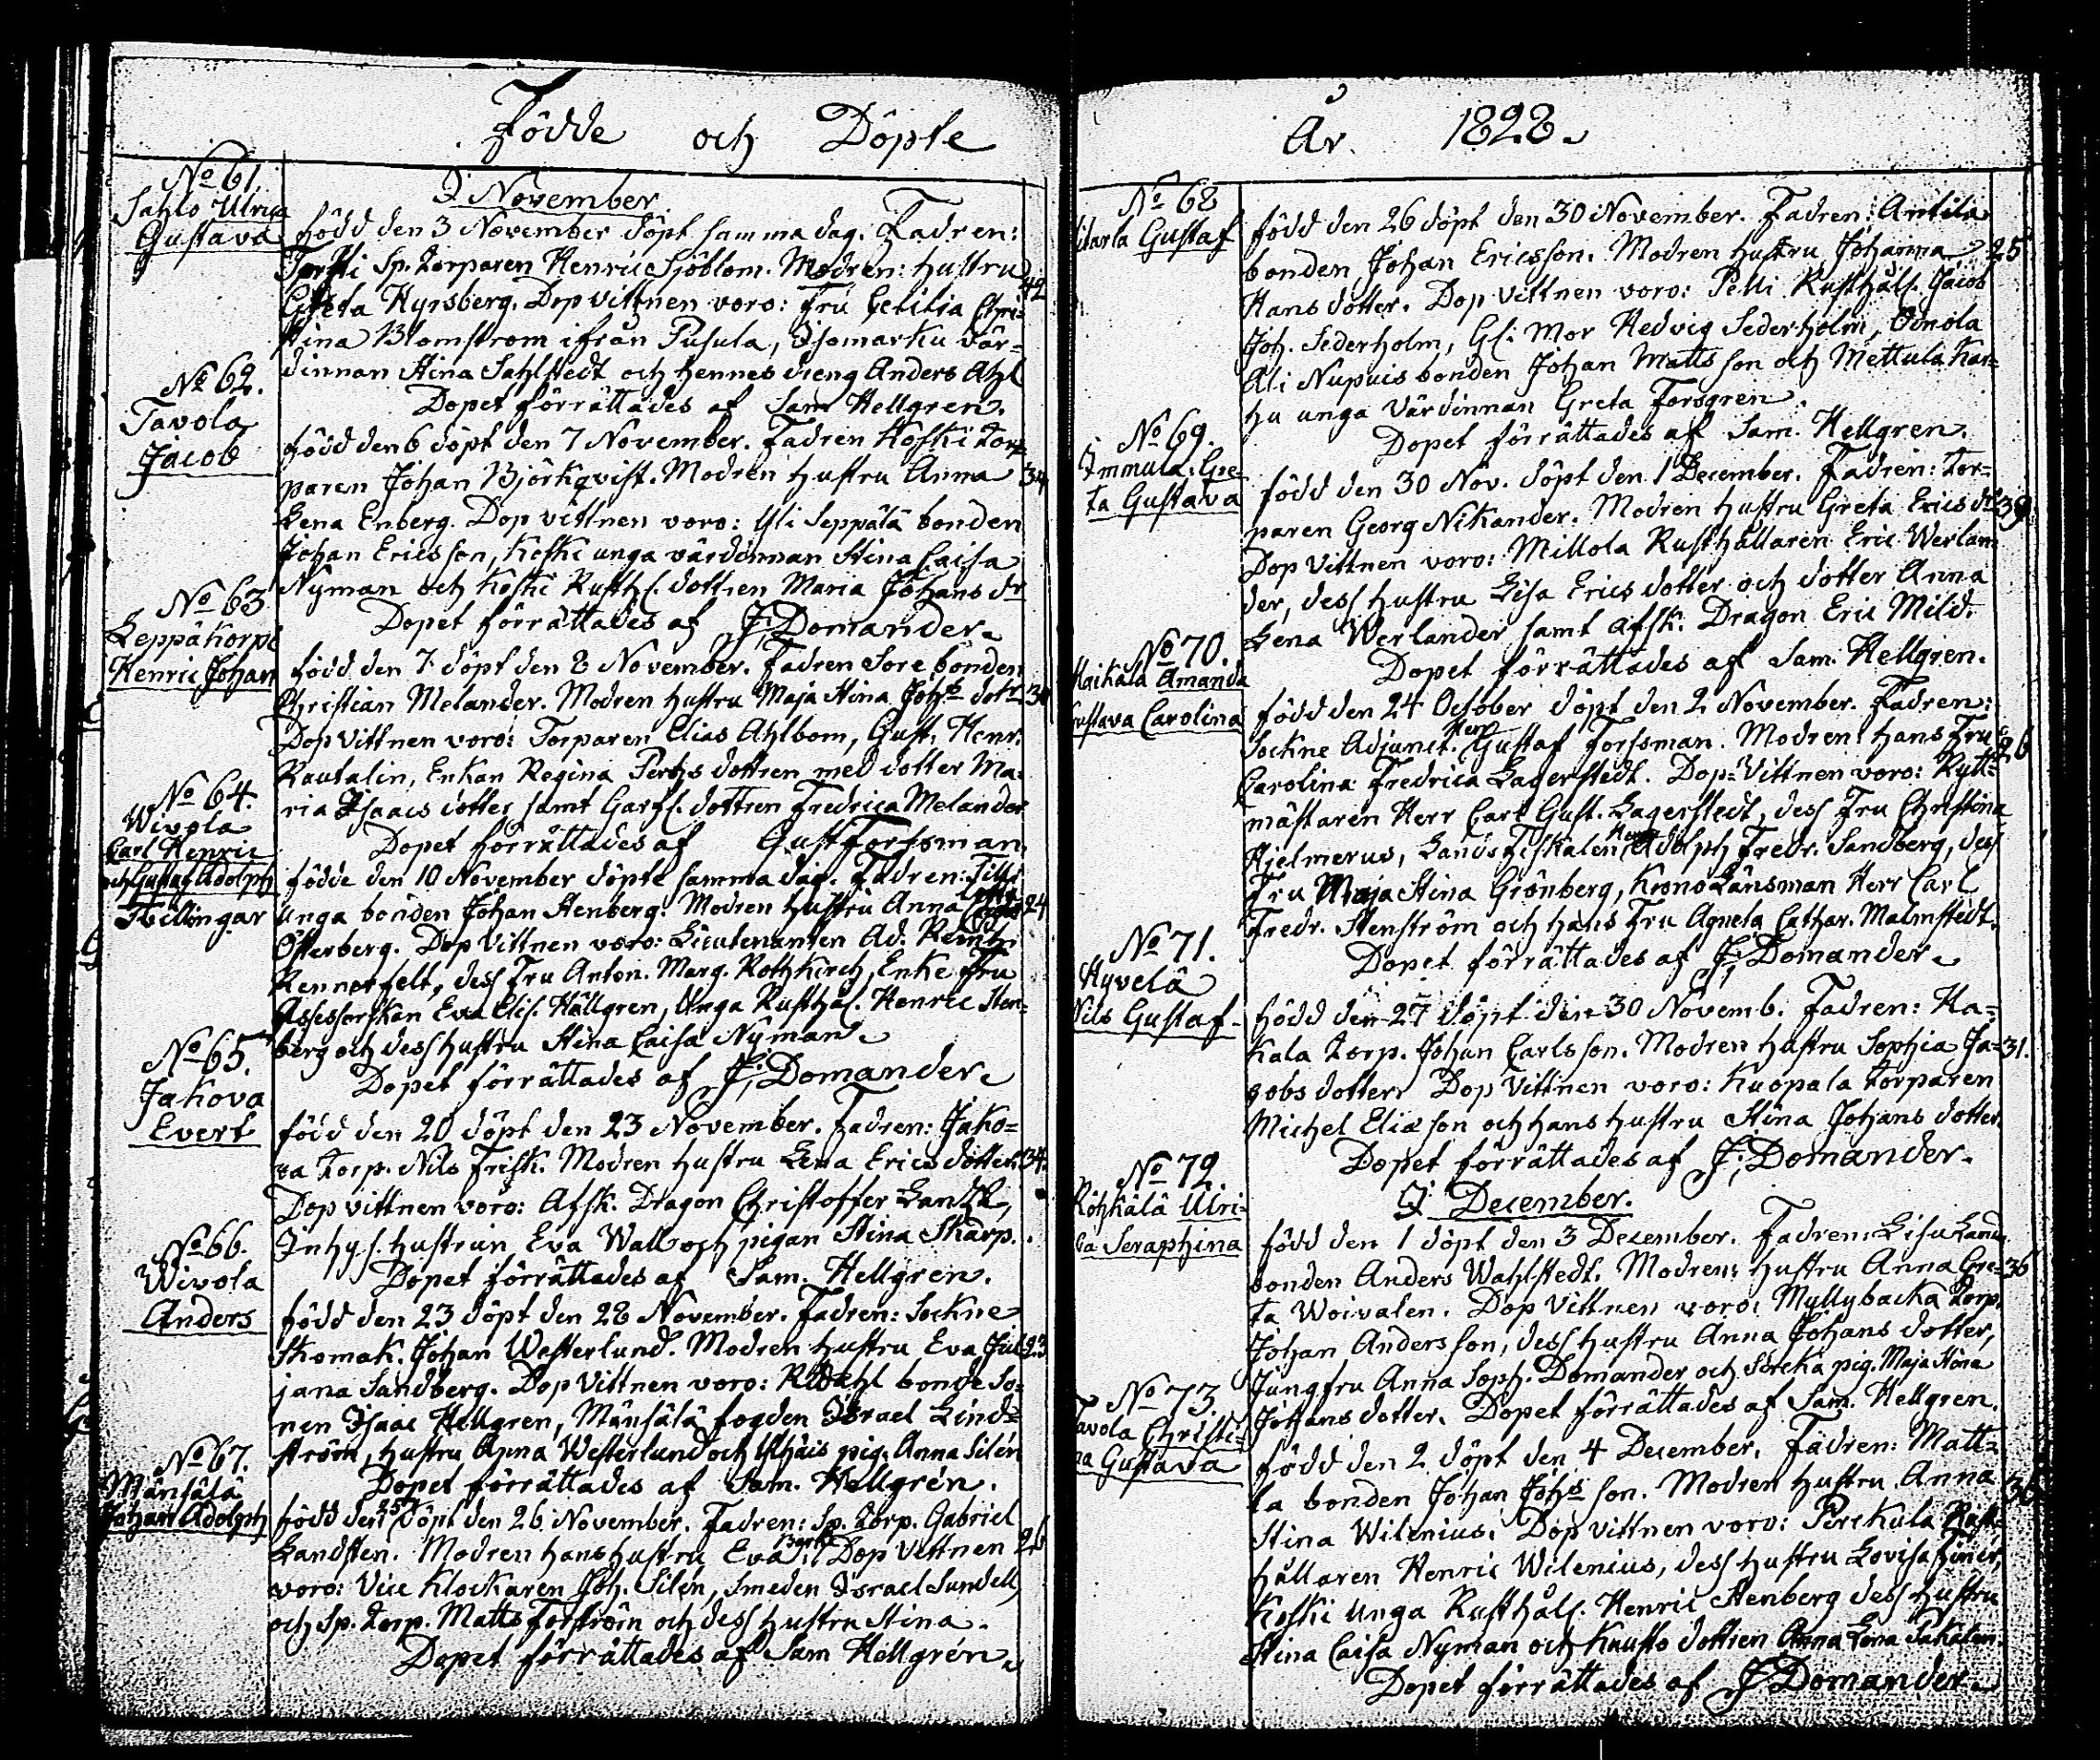 Födde och Döpte
No 61.
Sahlo Ulrica
Gustava
I November.
född den 3 November döpt samma dag. Fadren:
Torfsti Sp. torparen Henric Sjöblom. Modren: hustru
42
Greta Hyrsberg. Dop vittnen voro: Fru Cecilia Chri-
stina Blomstrom ifrån Pusula, Isomarku vär-
dinnan Stina Sahlstedt och hennes dreng Anders Ahl
Dopet förrättades af Sam Hellgren.
No 62.
Tavola
Jacob
född den 6 döpt den 7 November. Fadren Koski tor-
paren Johan Björkqvist. Modren hustru Anna
34
Lena Enberg. Dop vittnen voro: Yli Seppälä bonden
Johan Ericsson, Koski unga värdinnan Stina Caisa
Nyman och Koski Rusth. dottren Maria Johans dr
Dopet förrättades af J. Domander.
No 63
Leppäkorpi
Henric Johan
född den 7 döpt den 8 November. Fadren Sore bonden
Christian Melander. Modren hustru Maja Stina Johs dotr
30
Dop vittnen voro: Torparen Elias Ahlbom, Gust. Henr.
Rautalin, Enkan Regina Pertys dottren med dotter Ma-
ria Isaacs dotter samt Garf. dottren Fredrica Melander
Dopet förrättades af Gust Forssman.
No 64.
Wivola
Carl Henric
och Gustaf Adolph
Tvillingar
födde den 10 November döpte samma dag. Fadren: Tilli
unga bonden Johan Stenberg. Modren hustru Anna
24
Österberg. Dop Vittnen voro: Lieutenanten Ad. Reinh.
Rennerfelt, dess Fru Anton. Marg. Rothkirch, Enke Fru
Assessorskan Eva Elis. Hällgren, Unga Rusthål. Henric Sten-
berg och dess hustru Stina Caisa Nyman.
Dopet förrättades af J. Domander.
No 65.
Jakova
Evert
född den 20 döpt den 23 November. Fadren: Jako-
va torp. Nils Frisk. Modren hustru Lena Erics dotter.
34.
Dop vittnen voro: Afsk. Dragon Christoffer Landt,
Inhys. hustrun Eva Wall och pigan Stina Skarp.
Dopet förrättades af Sam. Hellgren.
No 66.
Wivola
Anders
född den 23 döpt den 28 November. Fadren: Sockne
Skomak. Johan Westerlund. Modren hustru Eva Jul-
23
jana Sandberg. Dop Vittnen voro: R. Dahl bonde so-
nen Isaac Hellgren, Mänsälä fogden Israel Lind-
ström, hustru Anna Westerlund och Ylhäis pig. Anna Silén
Dopet förrättades af Sam. Hellgrén.
No 67.
Mänsälä
Johan Adolph
född den 25 döpt den 26 November. Fadren: Sp. torp. Gabriel
Landsten. Modren hans hustru Eva Dop Vittnen
26
voro: Vice Klockaren Joh. Silén, Smeden Israel Sundell,
och Sp. torp. Matts Forström och dess hustru Stina.
Dopet förrättades af Sam Hellgrén.
År 1828.
No 68
Gustaf
född den 26 döpt den 30 November. Fadren: Antila
bonden Johan Ericsson. Modren hustru Johanna
25
Hans dotter. Dop vittnen voro: Pelli Rusthåls. Jacob
Joh. Sederholm, Gl. Mor Hedvig Sederholm, Oinola
Ali Nupuis bonden Johan Matts son och Mettula Kar-
hu unga Värdinnan Greta Forsgren.
Dopet förrättades af Sam. Hellgren.
No 69.
Immula: Gre-
ta Gustava
född den 30 Nov. döpt den 1 December. Fadren: tor-
paren Georg Nikander. Modren hustru Greta Erics dr
39
Dop Vittnen voro: Millola Rusthållaren Eric Werlan-
der, dess hustru Lisa Erics dotter och dotter Anna
Lena Werlander samt afsk. Dragon Eric Mild.
Dopet förrättades af Sam. Hellgren.
No 70.
Haikala Amanda
Gustava Carolina
född den 24 October döpt den 2 November. Fadren:
Sockne Adjunct. Herr Gustaf Forssman. Modren hans Fru
26
Carolina Fredrica Lagerstedt. Dop-Vittnen voro: Rytt-
mästaren Herr Carl Gust. Lagerstedt, dess Fru Christina
Hjelmerus, Landsfiskalen Herr Adolph Fredr. Sandberg, dess
Fru Maja Stina Grönberg, Krono Länsman Herr Carl
Fredr. Stenström och hans Fru Agneta Cathar. Malmstedt.
Dopet förrättades af J. Domander.
No 71.
Hyvelä
Nils Gustaf
född den 27 döpt den 30 Novemb. Fadren: Ha-
kala torp. Johan Carlsson. Modren hustru Sophia Ja-
31.
cobs dotter Dop Vittnen voro: Kuopala torparen
Michel Elias son och hans hustru Stina Johans dotter
Dopet förrättades af J. Domander.
No 72.
Röhkälä Ulri-
ca Seraphina
I December.
född den 1 döpt den 3 December. Fadren: Lisu Land
bonden Anders Wahlstedt. Modren: hustru Anna Gre-
36
ta Woivalen. Dop Vittnen voro: Myllybacka torp.
Johan Andersson, dess hustru Anna Johans dotter,
Jungfru Anna Soph. Domander och Soreka pig. Maja Stina
Johans dotter. Dopet förrättades af Sam. Hellgren.
No 73.
Tavola Christi-
na Gustava
född den 2 döpt den 4 December. Fadren: Matt-
la bonden Johan Johs son. Modren hustru Anna
36
Stina Wilenius. Dop vittnen voro: Perekula Rust-
hållaren Henric Wilenius, dess hustru Lovisa
Koski Unga Rusthåls. Henric Stenberg dess hustru
Stina Caisa Nyman och Knuuts dottren Anna Lena Takalen.
Dopet förrättades af J Domander.